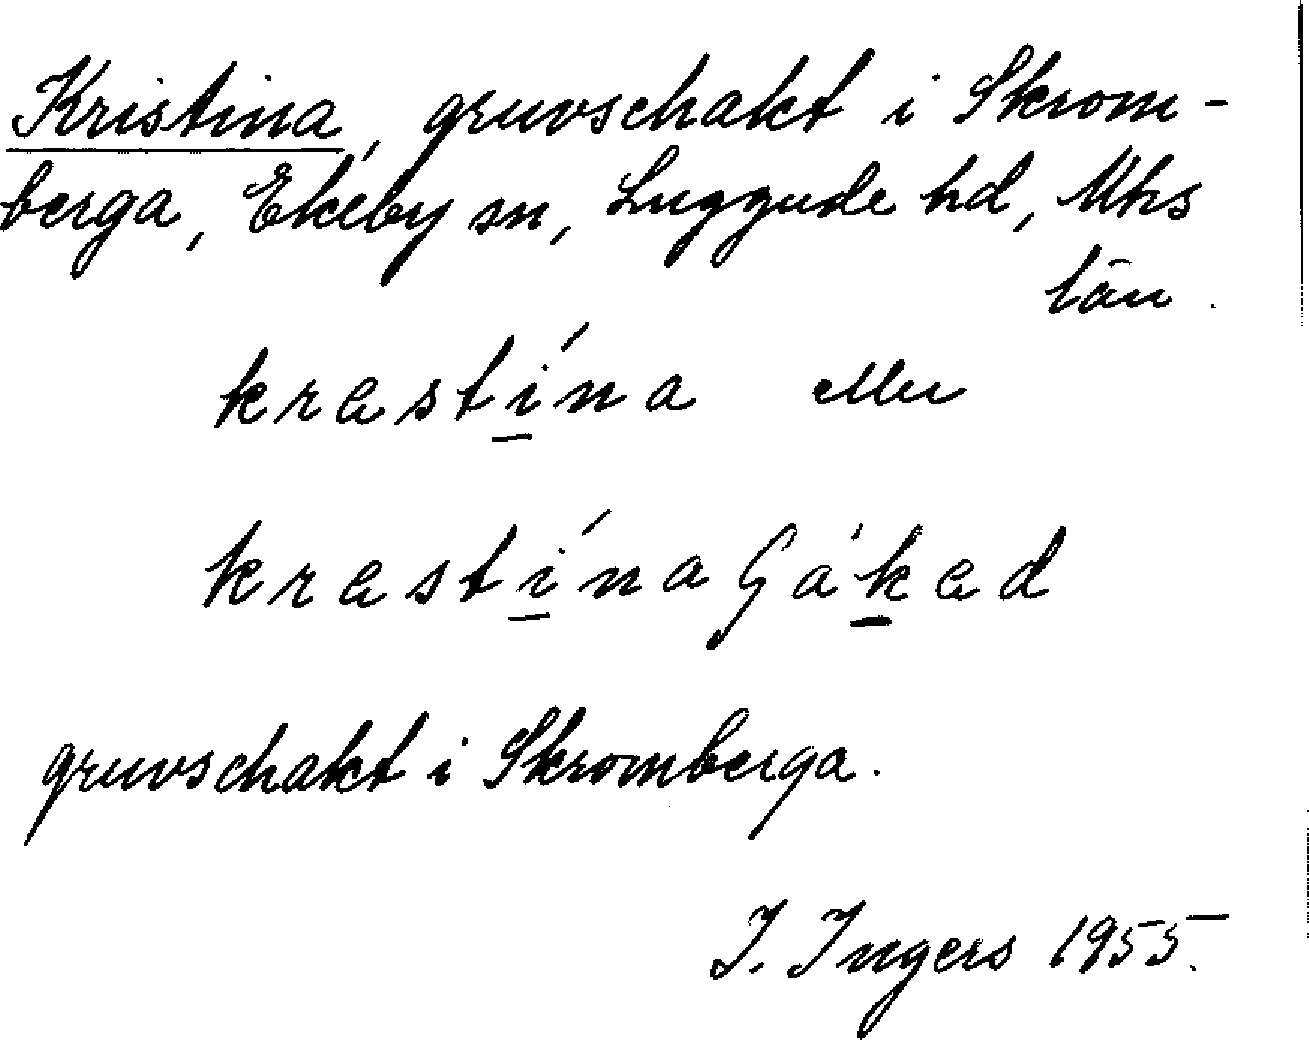 Kristina, gruvschakt i Skrom-
berga, Ekeby sn, Luggude hd, Mhs
län.
krastína eller
krastína
gruvschakt i Skromberga.
I. Ingers 1955.